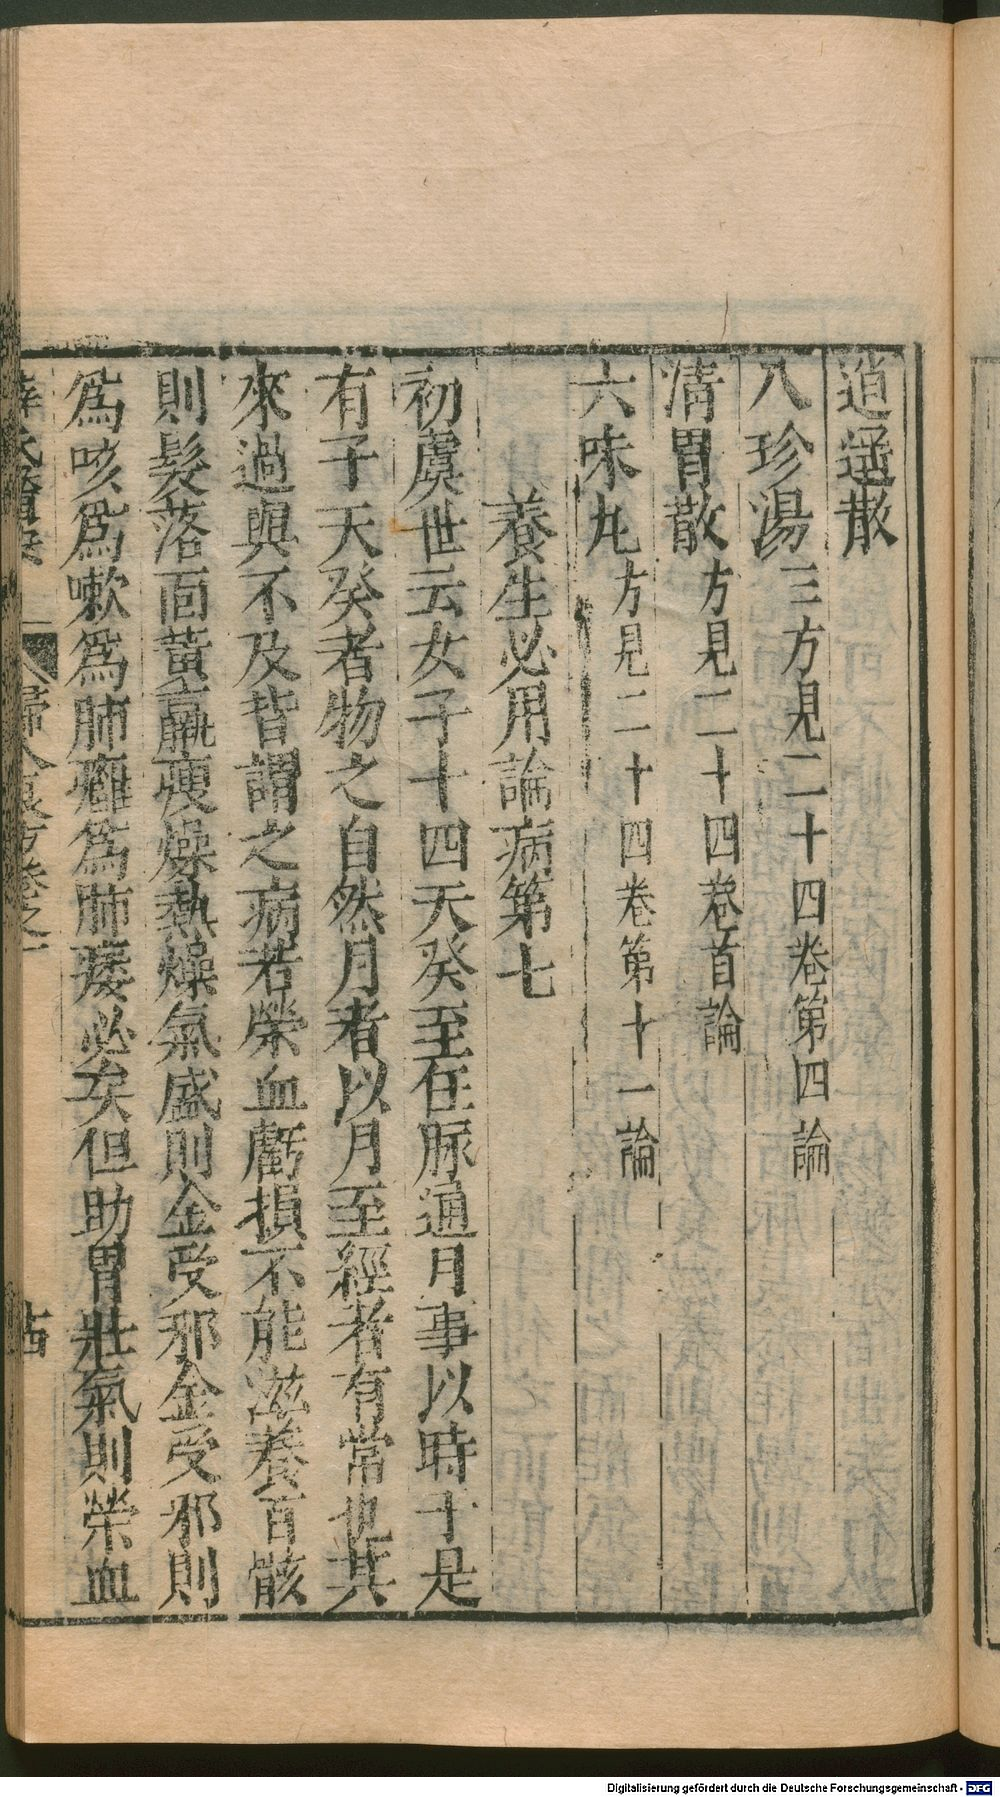 逍遥散
八珍湯三方見二十四卷第四論
清胃散方見二十四卷首論
六味丸方見二十四卷第十一論
養生必用論病第七
初虞世云女子十四天癸至任脉通月事以時下是
有子天癸者物之自然月者以月至經者有常也其
來過與不及皆謂之病若榮血虧損不能滋養百骸
則髮落面黃羸瘦燥熱燥氣盛則金受邪金受邪則
爲咳爲嗽爲肺癰爲肺痿必矣但助胃壯氣則榮血
薛氏醫案 婦人良方卷之一
Digitalisierung gefördert durch die Deutsche Forschungsgemeinschaft - DFG